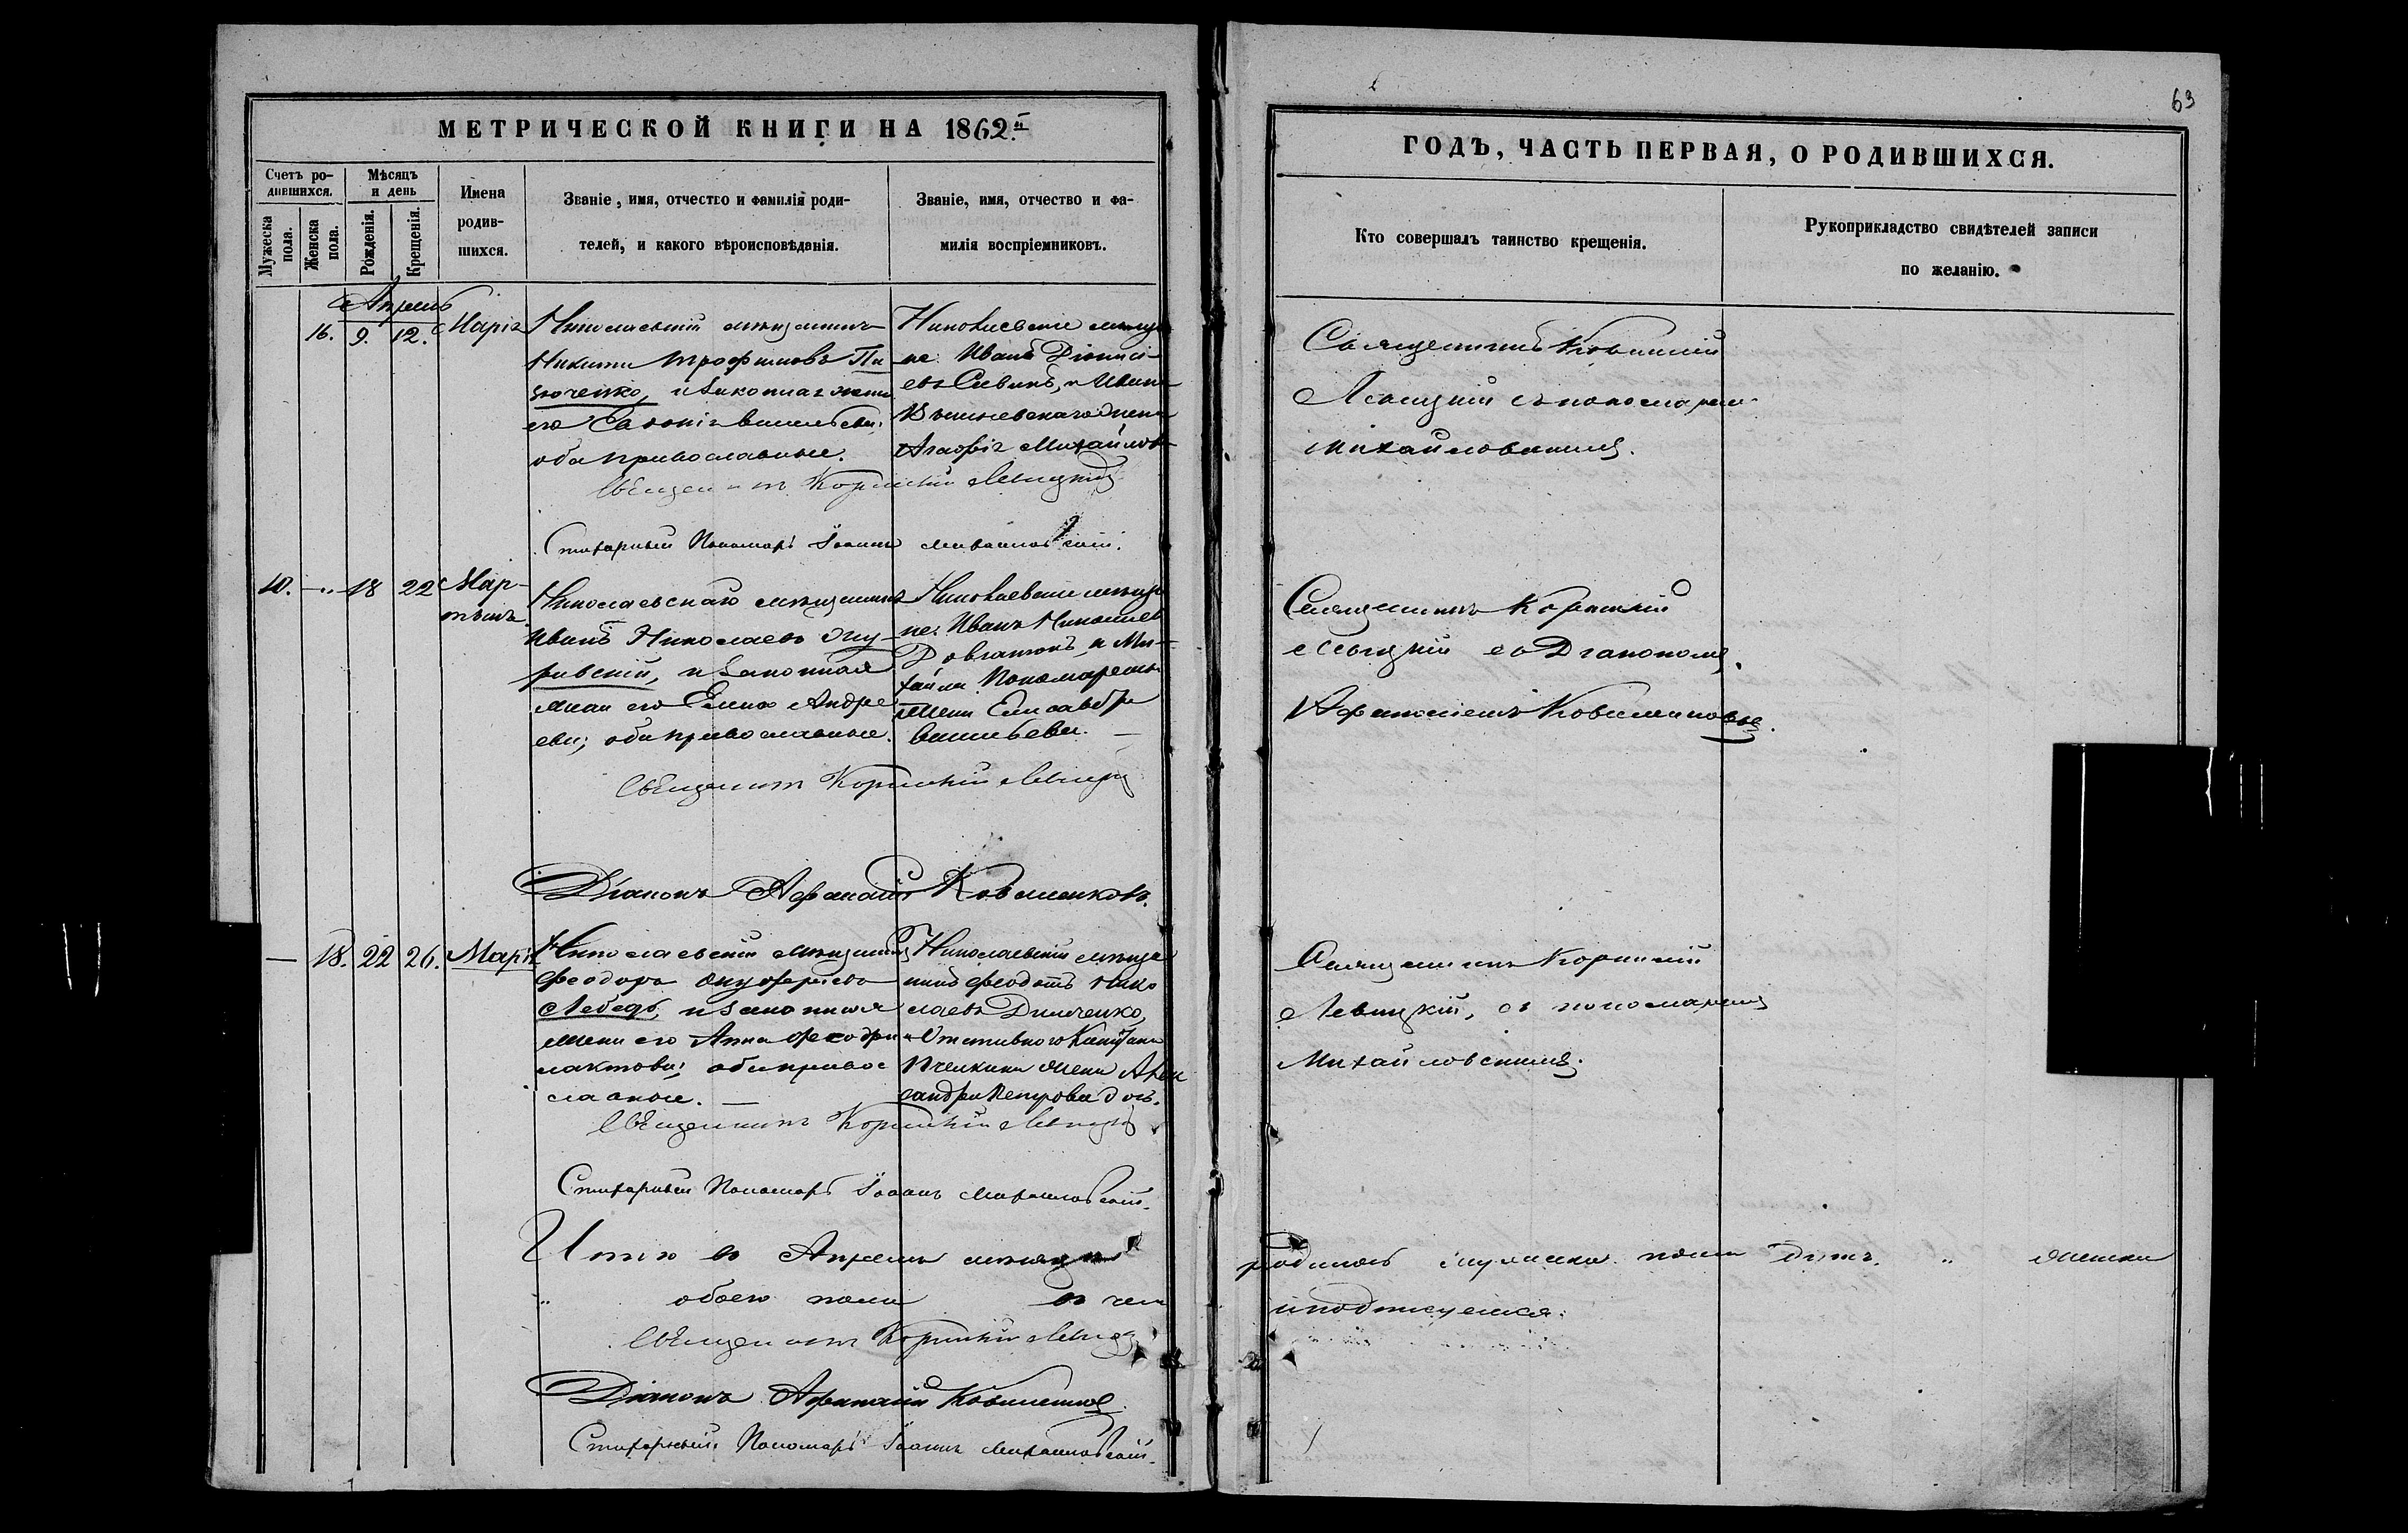 63
МЕТРИЧЕСКОЙ КНИГИ НА 1862.й
ГОДЪ, ЧАСТЬ ПЕРВАЯ, О РОДИВШИХСЯ.
Счетъ ро-
дившихся.
Мужеска пола.
Женска пола.
Мѣсяцъ
и день
Рожденія.
Крещенія.
Имена
родив-
шихся.
Званіе, имя, отчество и фамилія роди-
телей, и какого вѣроисповѣданія.
Званіе, имя, отчество и фа-
милія воспріемниковъ.
Кто совершалъ таинство крещенія.
Рукоприкладство свидѣтелей записи
по желанію.
Апрель
16. 9. 12. Марія
Николаевскій мѣщанинъ
Никита Трофимовъ
и законная жена
его Васильева
оба православные.
Николаевскіе мѣща-
не Иванъ Діонисі-
евъ и Ивана
жена
Агафія Михайлова
Священникъ Корнилій
Левицкій съ пономаремъ
Михайловскимъ.
Священникъ Корнилій Левицкій
Стихарный Пономарь Іоаннъ Михайловскій.
10. — 18 22 Мар-
тинъ
Николаевскаго мѣщанина
Иванъ Николаевъ
и законная
жена его Елена Андре
ева; оба православные.
Николаевскіе мѣща
не: Иванъ Николаевъ
и Ми-
хаила Пономаренка
жена Елисавефа
Васильева.
Священникъ Корнилій
Левицкій съ Діакономъ
Афанасіемъ
Священникъ Корнилій Левицкій
Діаконъ Афанасій
— 18. 22 26. Марія
Николаевскій мѣщанинъ
Феодоръ Онуфріевъ
Лебедь, и законная
жена его Анна Феодри
лактова; оба правос
лавные. —
Николаевскій мѣща
нинъ Феодотъ Нико
лаевъ Димченко,
и Отставного Капитана
Пчелкина жена Алек
сандра Петрова дочь.
Священникъ Корнилій
Левицкій, съ пономаремъ
Михайловскимъ.
Священникъ Корнилій Левицкій
Стихарный Пономарь Іоаннъ Михайловскій.
Итого въ Апрелѣ мѣсяцѣ родилось мужеска пола " женска
" обоего пола въ чемъ и подписуемся:
Священникъ Корнилій Левицкій
Діаконъ Афанасій
Стихарный Пономарь Іоаннъ Михайловскій.